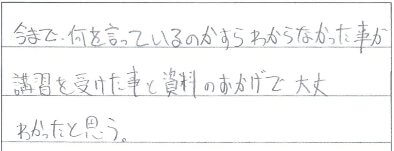 今まで、何を言っているのかすらわからなかった事が
講習を受けた事と資料のおかげで大丈
わかったと思う。